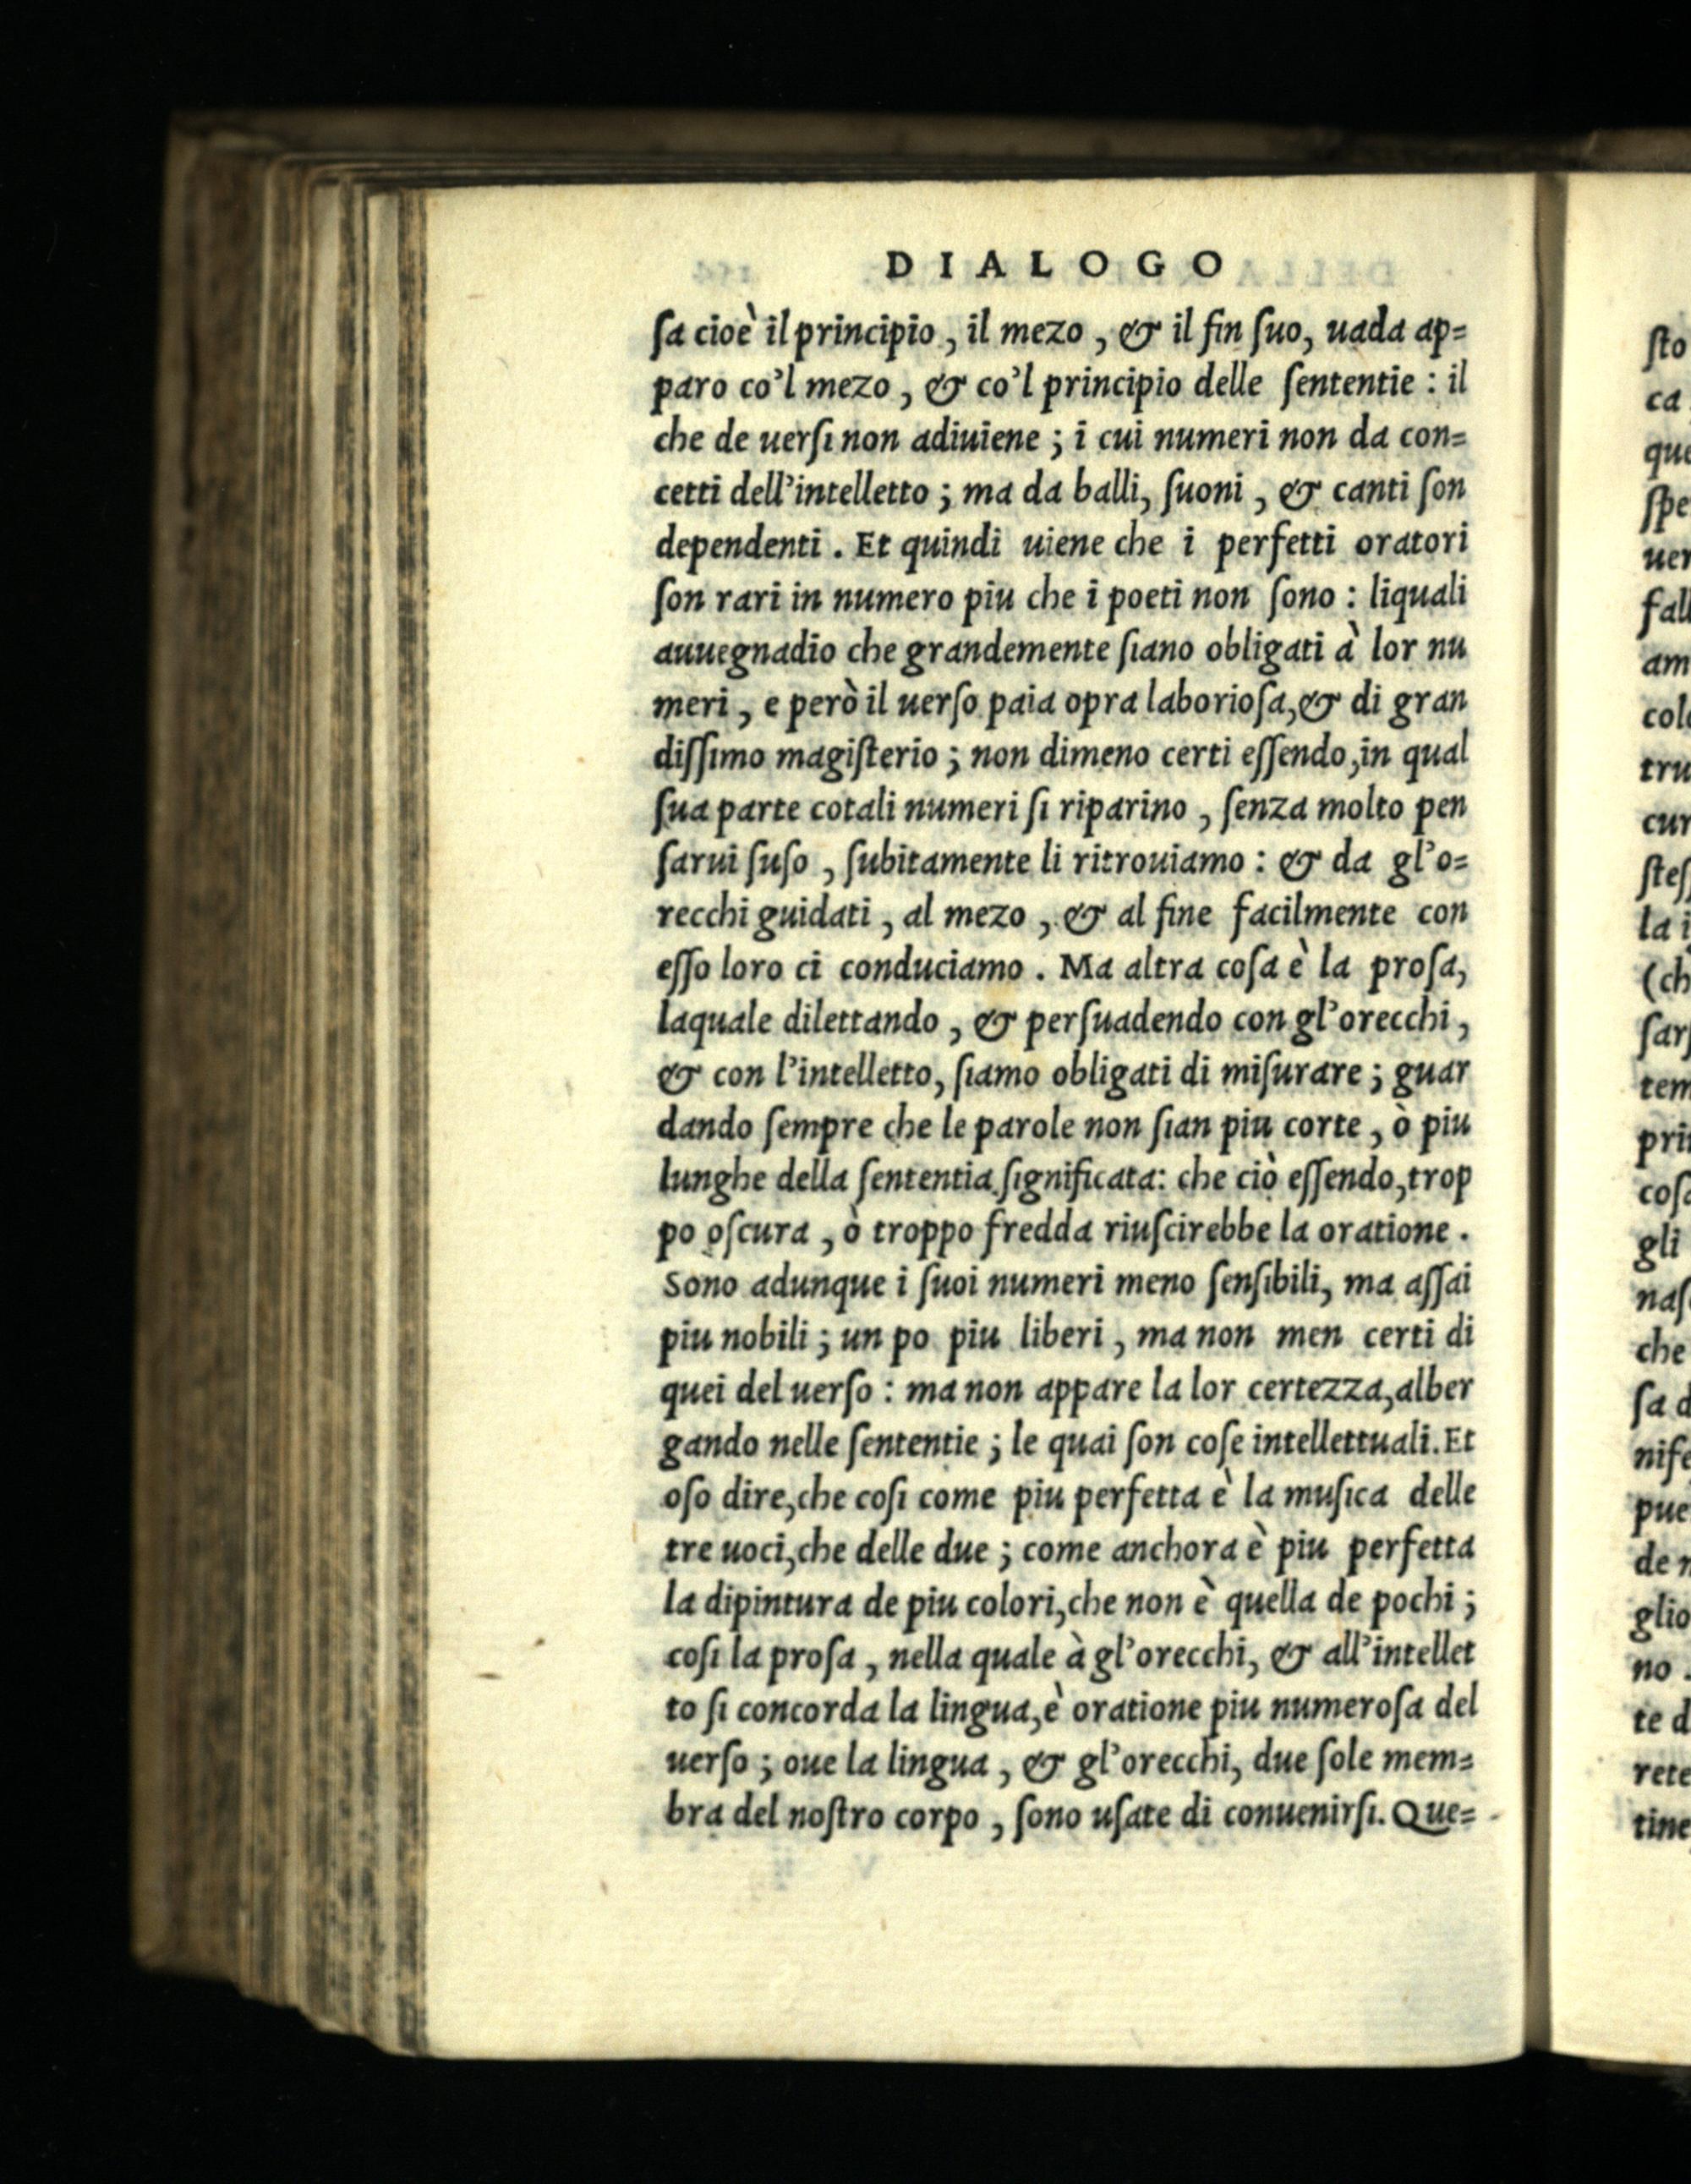 DIALOGO
ſa cioè il principio, il mezo, & il fin ſuo, uada ap=
paro co'l mezo, & co'l principio delle ſententie: il
che de uerſi non adiuiene; i cui numeri non da con=
cetti dell'intelletto; ma da balli, ſuoni, & canti ſon
dependenti. Et quindi uiene che i perfetti oratori
ſon rari in numero piu che i poeti non ſono: liquali
auuegnadio che grandemente ſiano obligati à lor nu
meri, e però il uerſo paia opra laborioſa, & di gran
diſſimo magiſterio; non dimeno certi eſſendo, in qual
ſua parte cotali numeri ſi riparino, ſenza molto pen
ſarui ſuſo, ſubitamente li ritrouiamo: & da gl'o=
recchi guidati, al mezo, & al fine facilmente con
eſſo loro ci conduciamo. Ma altra coſa è la proſa,
laquale dilettando, & perſuadendo con gl'orecchi,
& con l'intelletto, ſiamo obligati di miſurare; guar
dando ſempre che le parole non ſian piu corte, ò piu
lunghe della ſententia ſignificata: che ciò eſſendo, trop
po oſcura, ò troppo fredda riuſcirebbe la oratione.
Sono adunque i ſuoi numeri meno ſenſibili, ma aſſai
piu nobili; un po piu liberi, ma non men certi di
quei del uerſo: ma non appare la lor certezza, alber
gando nelle ſententie; le quai ſon coſe intellettuali. Et
oſo dire, che coſi come piu perfetta è la muſica delle
tre uoci, che delle due; come anchora è piu perfetta
la dipintura de piu colori, che non è quella de pochi;
coſi la proſa, nella quale à gl'orecchi, & all'intellet
to ſi concorda la lingua, è oratione piu numeroſa del
uerſo; oue la lingua, & gl'orecchi, due ſole mem=
bra del noſtro corpo, ſono uſate di conuenirſi. Que=